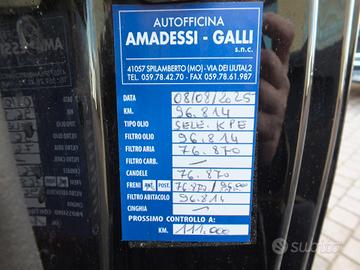 AUTOFFICINA
AMADESSI - GALLI
s.n.c.
41057 SPILAMBERTO (MO) - VIA DEI LIUTAI,2
TEL. 059.78.42.70 - FAX 059.78.61.987
DATA 08/08/2025
KM. 96.814
TIPO OLIO SELE. KPE
FILTRO OLIO 96.814
FILTRO ARIA 76.870
FILTRO CARB. —
CANDELE 76.870
FRENI ANT. POST. 76.870/
FILTRO ABITACOLO 96.814
CINGHIA —
PROSSIMO CONTROLLO A:
KM. 111.000
subito